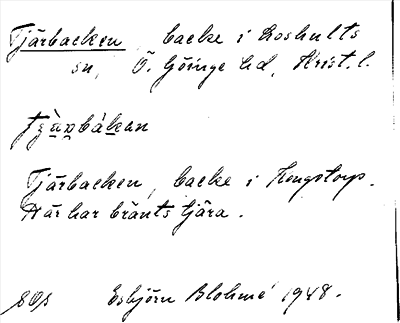 Tjärbacken, backe i Loshults
sn, Ö. Göinge hd, Krist. l.
Tjärbacken, backe i Kongstorp.
Där har bränts tjära.
Esbjörn Blohmé 1948.